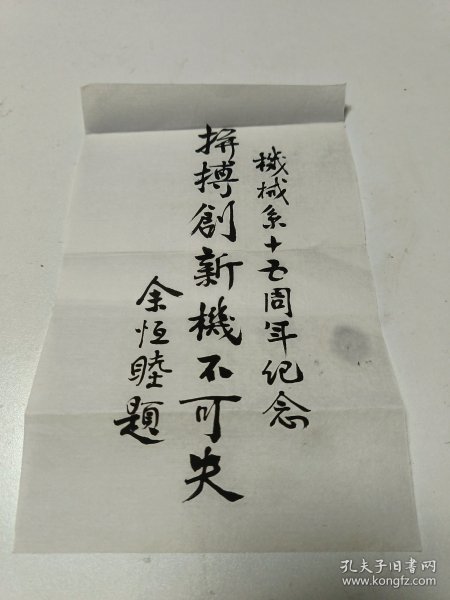 機械系十五周年纪念
拼搏創新機不可失
余恒睦題
孔夫子旧书网
www.kongfz.com